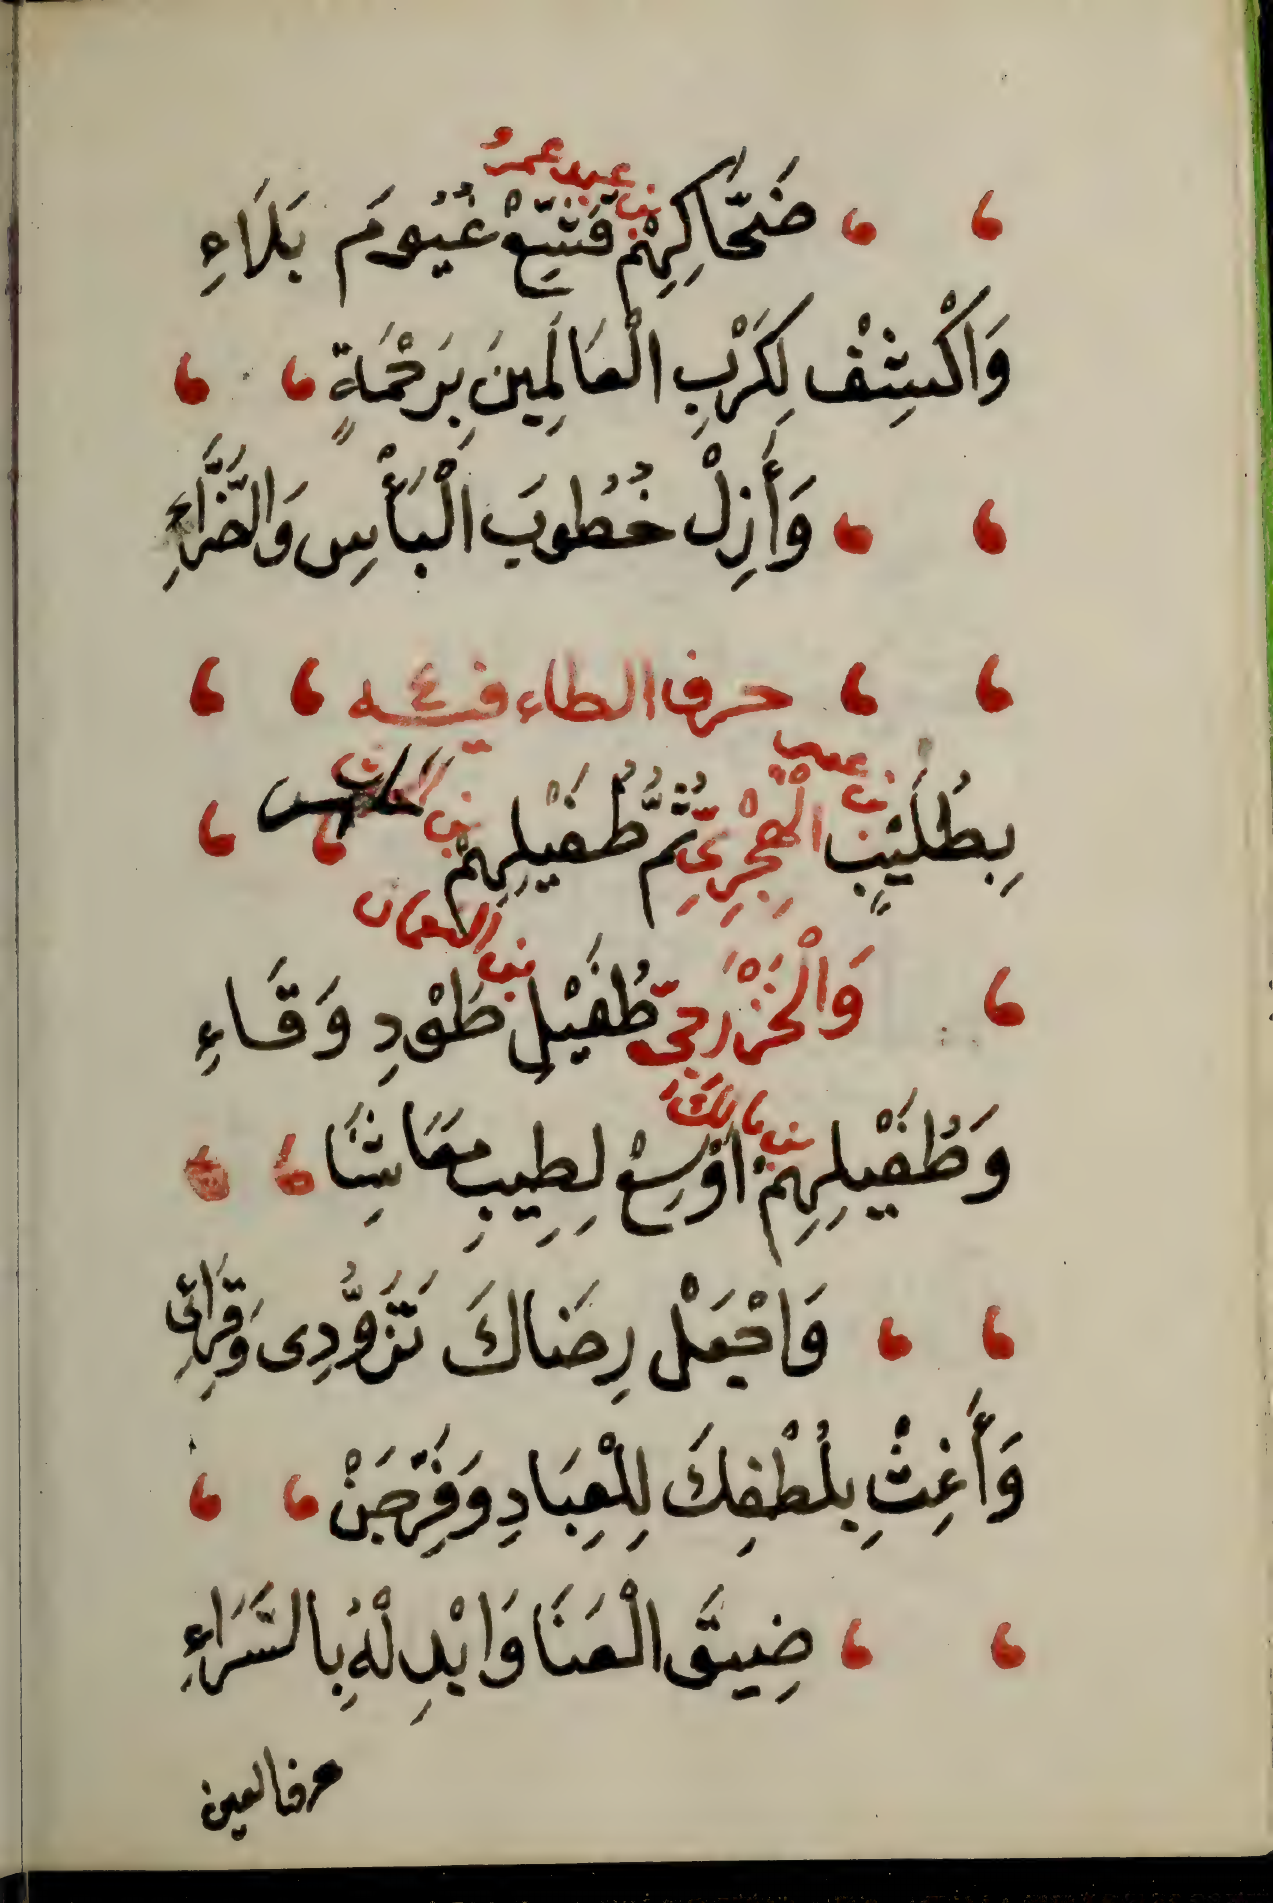 بن عبد عمرو
ضَحَّاكِهِمْ قَشِّعْ غُيُومَ بَلَاءِ
وَاكْشِفْ لِكَرْبِ الْعَالَمِينَ بِرَحْمَةٍ
وَأَزِلْ خُطُوبَ الْبَأْسِ وَالضَّرَّاءِ
حرف الطاء فيه ٤
بن عمر
بِطُلَيْبٍ الْهِجْرِيِّ ثُمَّ طُفَيْلِهِمْ
بن النعمان
وَالْخَزْرَجِيّ طُفَيْلِ طَوْدِ وَقَاءِ
بن مالك
وَطُفَيْلِهِمْ أَوْسِعْ لِطِيبِ مَعَاشِنَا
وَاجْعَلْ رِضَاكَ تَزَوُّدِى وَقِرَائِى
وَأَغِثْ بِلُطْفِكَ لِلْعِبَادِ وَفَرِّجَنْ
ضِيقَ الْعَنَا وَابْدِلْهُ بِالسَّرَاءِ
حرف العين